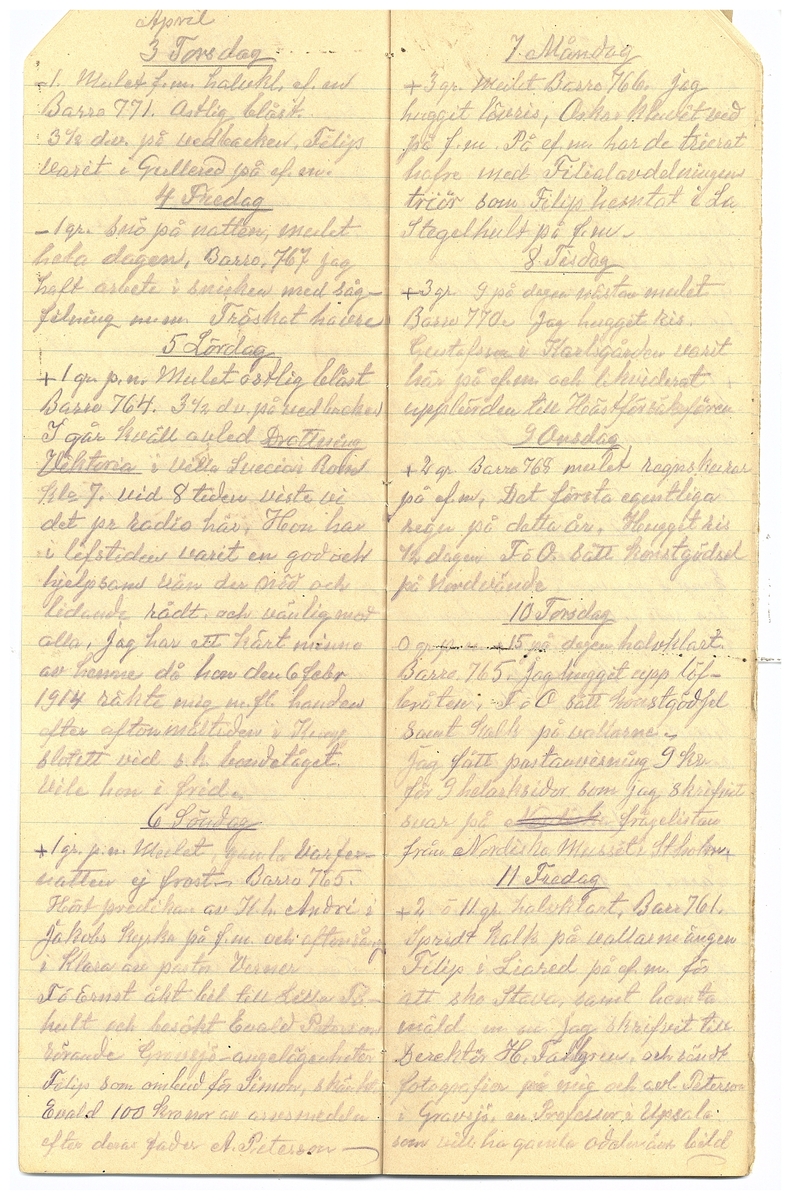 April
3 Torsdag
-1. Mulet f.m. halvkl. ef. em
Barro 771. Ostlig blåst.
3 1/2 dv. på vedbacken, Filips
varit i Gullered på ef.m.
4 Fredag
-1 gr. snö på natten, mulet
hela dagen, Barro, 767 jag
haft arbete i snickeri med såg-
filning m.m. Tröskat havre
5 Lördag
+1 gr. p.n. Mulet ostlig blåst
Barro 764. 3 1/2 dv. på vedbacken
I går kväll avled Drottning
Viktoria i villa Svecia i Rom
Kl. 7. vid 8 tiden viste vi
det pr radio här, Hon har
i lifstiden varit en god och
hjelpsam vän der nöd och
lidande rådt, och vänlig mod
alla, Jag har ett kärt minne
av henne då hon den 6 febr
1914 räkte mig m.fl. handen
efter aftonmåltiden i Kung
slottett vid s.k. bondetåget.
Vile hon i frid.
6 Söndag
+1 gr. p.n. Mulet, gamla Varfru-
natten ej frost. Barro 765.
Hört predikan av K.h. Andri i
Jakobs kyrka på f.m. och aftonsång
i Klara av pastor Verner
F ö Ernst åkt bil till Lilla
hult och besökt Evald Peterson
rörande Gravsjö-angelägenheter
Filip som ombud för Simon,
Evald 100 kronor av arvsmedeln
efter deras fader A. Peterson
7 Måndag
+3 gr. Mulet Barro 766. jag
huggit lövris, Oskar kluvit ved
på f.m. På ef.m. har de trierat
hafre med Filialavdelningens
triör som Filip hemtat i La
Stegelhult på f.m.
8 Tisdag
+3 gr. 9 på dagen nästan mulet.
Barro 770. Jag hugget ris.
Gustafsson i Karlsgården varit
här på ef.m. och likviderat
uppbörden till Hästförsäkr.fören
9 Onsdag
+2 gr. Barro 768 mulet regnskurar
på ef.m. Det första egentliga
regn på detta år. Hugget ris
1/2 dagen F ö O. sått konstgödsel
på Nordevände
10 Torsdag
0 gr. p.n. 15 på dagen, halvklart.
Barro. 765. Jag hugget upp löf-
bråten, F ö O sått konstgödsel
samt kalk på vallarne.
Jag fått postanvisning 9 kr
för 9 helarksidor som jag skrifvit
svar på frågelistan
från Nordiska Museet, Stholm
11 Fredag
+2 ö 11 gr. halvklart, Barr 761.
Spridt kalk på vallarne ängen
Filip i Liared på ef.m. för
att sko Stava, samt hemta
mäld m.m. Jag skrifvit till
Derektör H. och sändt
fotografier på mig och avl. Peterson
i Gravsjö, en Professor i Upsala
som vill ha gamla odelmäns bild